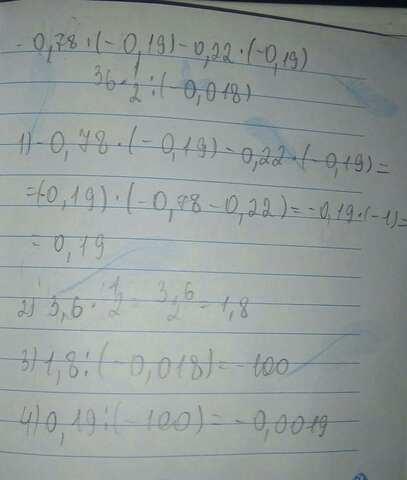 - 0,78 · (- 0,19) - 0,22 · (- 0,19)
36 · 1/2 : (- 0,018)
1) - 0,78 · (- 0,19) - 0,22 · (- 0,19) =
= (-0,19) · (- 0,78 - 0,22) = - 0,19 · (- 1) =
= 0,19
2) 3,6 · 1/2 = 3,6/2 = 1,8
3) 1,8 : (- 0,018) = - 100
4) 0,19 : (- 100) = - 0,0019